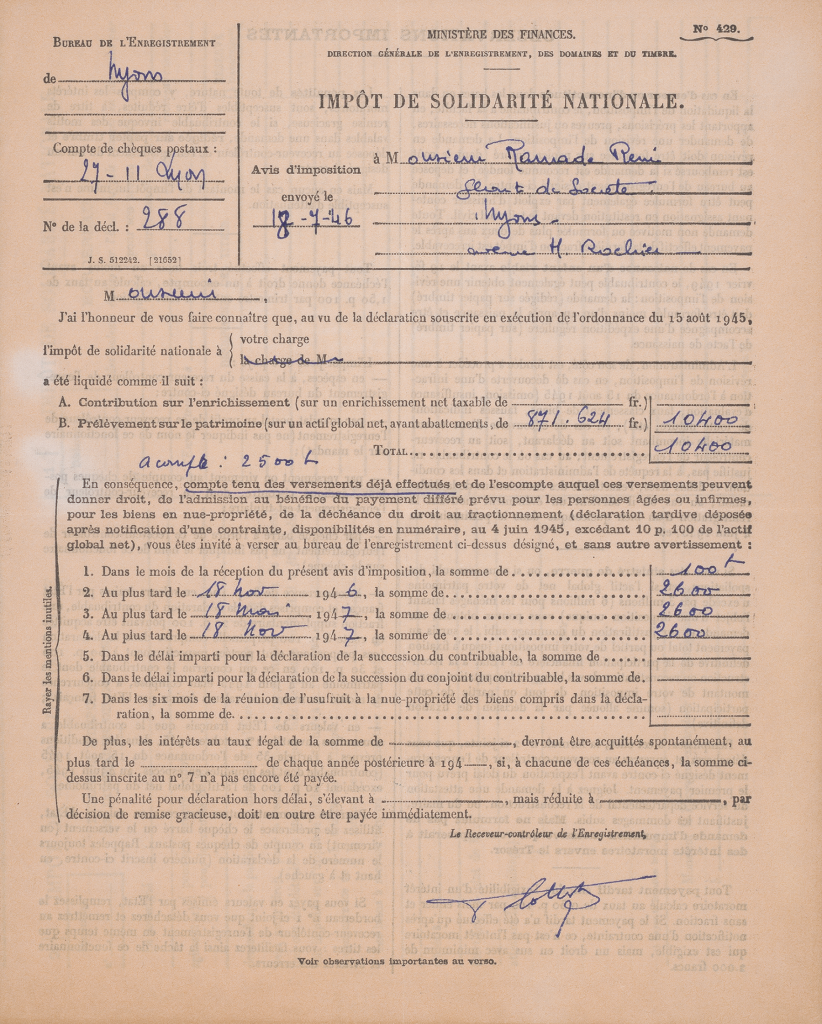 BUREAU DE L'ENREGISTREMENT
de Nyons
Compte de chèques postaux :
27-11 Lyon
N° de la décl. : 288
J. S. 512242. [21652]
MINISTÈRE DES FINANCES.
N° 429.
DIRECTION GÉNÉRALE DE L'ENREGISTREMENT, DES DOMAINES ET DU TIMBRE.
IMPÔT DE SOLIDARITÉ NATIONALE.
Avis d'imposition
envoyé le
18-7-46
à Monsieur Ramade René
gérant de Société
Nyons -
avenue H. Rochier
Monsieur,
J'ai l'honneur de vous faire connaître que, au vu de la déclaration souscrite en exécution de l'ordonnance du 15 août 1945,
l'impôt de solidarité nationale à { votre charge
la charge de M
a été liquidé comme il suit :
A. Contribution sur l'enrichissement (sur un enrichissement net taxable de fr.)
B. Prélèvement sur le patrimoine (sur un actif global net, avant abattements, de 871.624 fr.) 10400
TOTAL 10400
acompte : 2500 f
En conséquence, compte tenu des versements déjà effectués et de l'escompte auquel ces versements peuvent
donner droit, de l'admission au bénéfice du payement différé prévu pour les personnes âgées ou infirmes,
pour les biens en nue-propriété, de la déchéance du droit au fractionnement (déclaration tardive déposée
après notification d'une contrainte, disponibilités en numéraire, au 4 juin 1945, excédant 10 p. 100 de l'actif
global net), vous êtes invité à verser au bureau de l'enregistrement ci-dessus désigné, et sans autre avertissement :
Rayer les mentions inutiles.
1. Dans le mois de la réception du présent avis d'imposition, la somme de 100 f
2. Au plus tard le 18 Nov 1946, la somme de 2600
3. Au plus tard le 18 Mai 1947, la somme de 2600
4. Au plus tard le 18 Nov 1947, la somme de 2600
5. Dans le délai imparti pour la déclaration de la succession du contribuable, la somme de
6. Dans le délai imparti pour la déclaration de la succession du conjoint du contribuable, la somme de
7. Dans les six mois de la réunion de l'usufruit à la nue-propriété des biens compris dans la décla-
ration, la somme de
De plus, les intérêts au taux légal de la somme de , devront être acquittés spontanément, au
plus tard le de chaque année postérieure à 194 , si, à chacune de ces échéances, la somme ci-
dessus inscrite au n° 7 n'a pas encore été payée.
Une pénalité pour déclaration hors délai, s'élevant à , mais réduite à , par
décision de remise gracieuse, doit en outre être payée immédiatement.
Le Receveur-contrôleur de l'Enregistrement,
Voir observations importantes au verso.